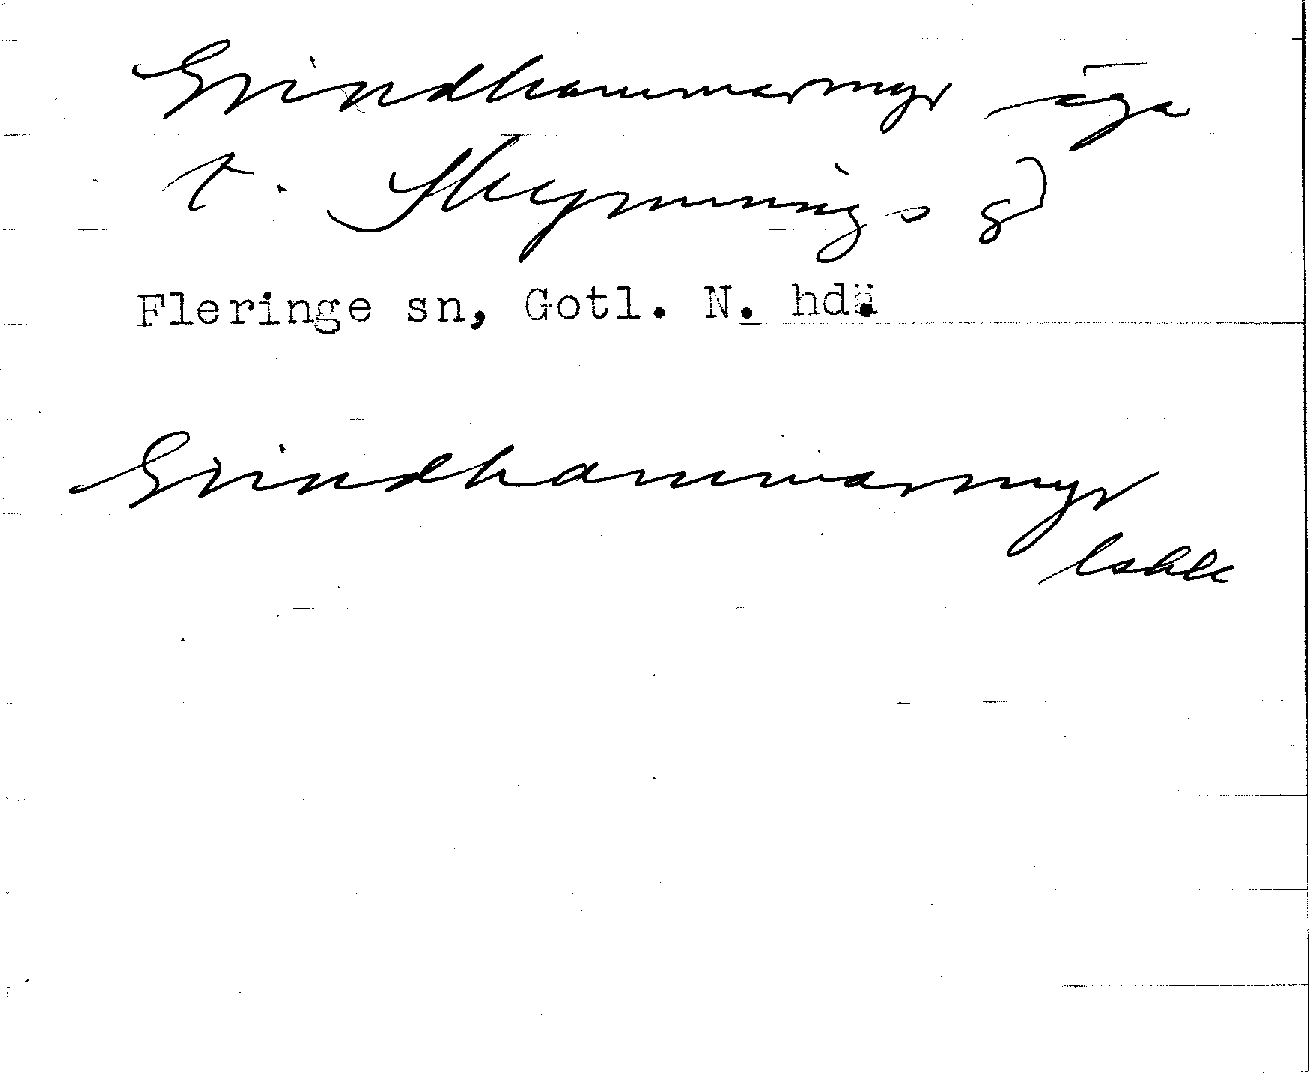 Grindhammarmyr äga
t. Skymnings gd
Fleringe sn, Gotl. N. hd.
Grindhammarmyr